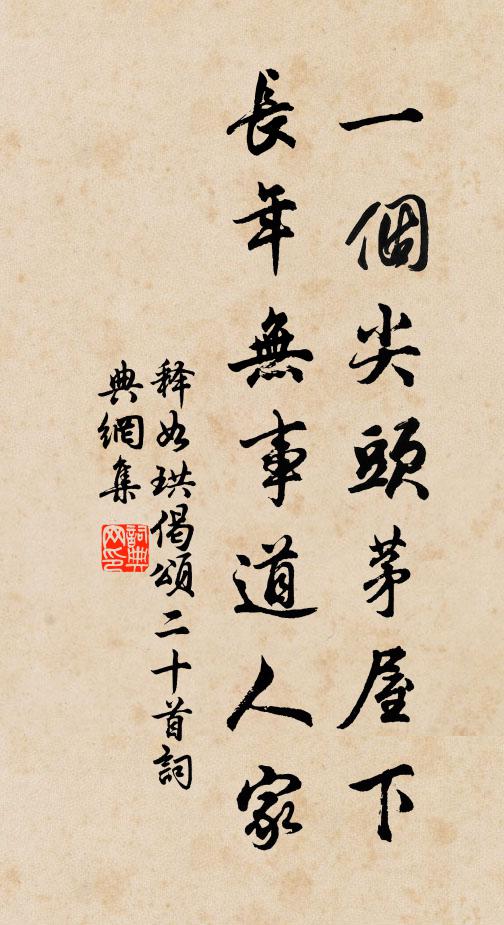 一個尖頭茅屋下
長年無事道人家
釋如珙偈頌二十首詞
典網集
詞典
網印